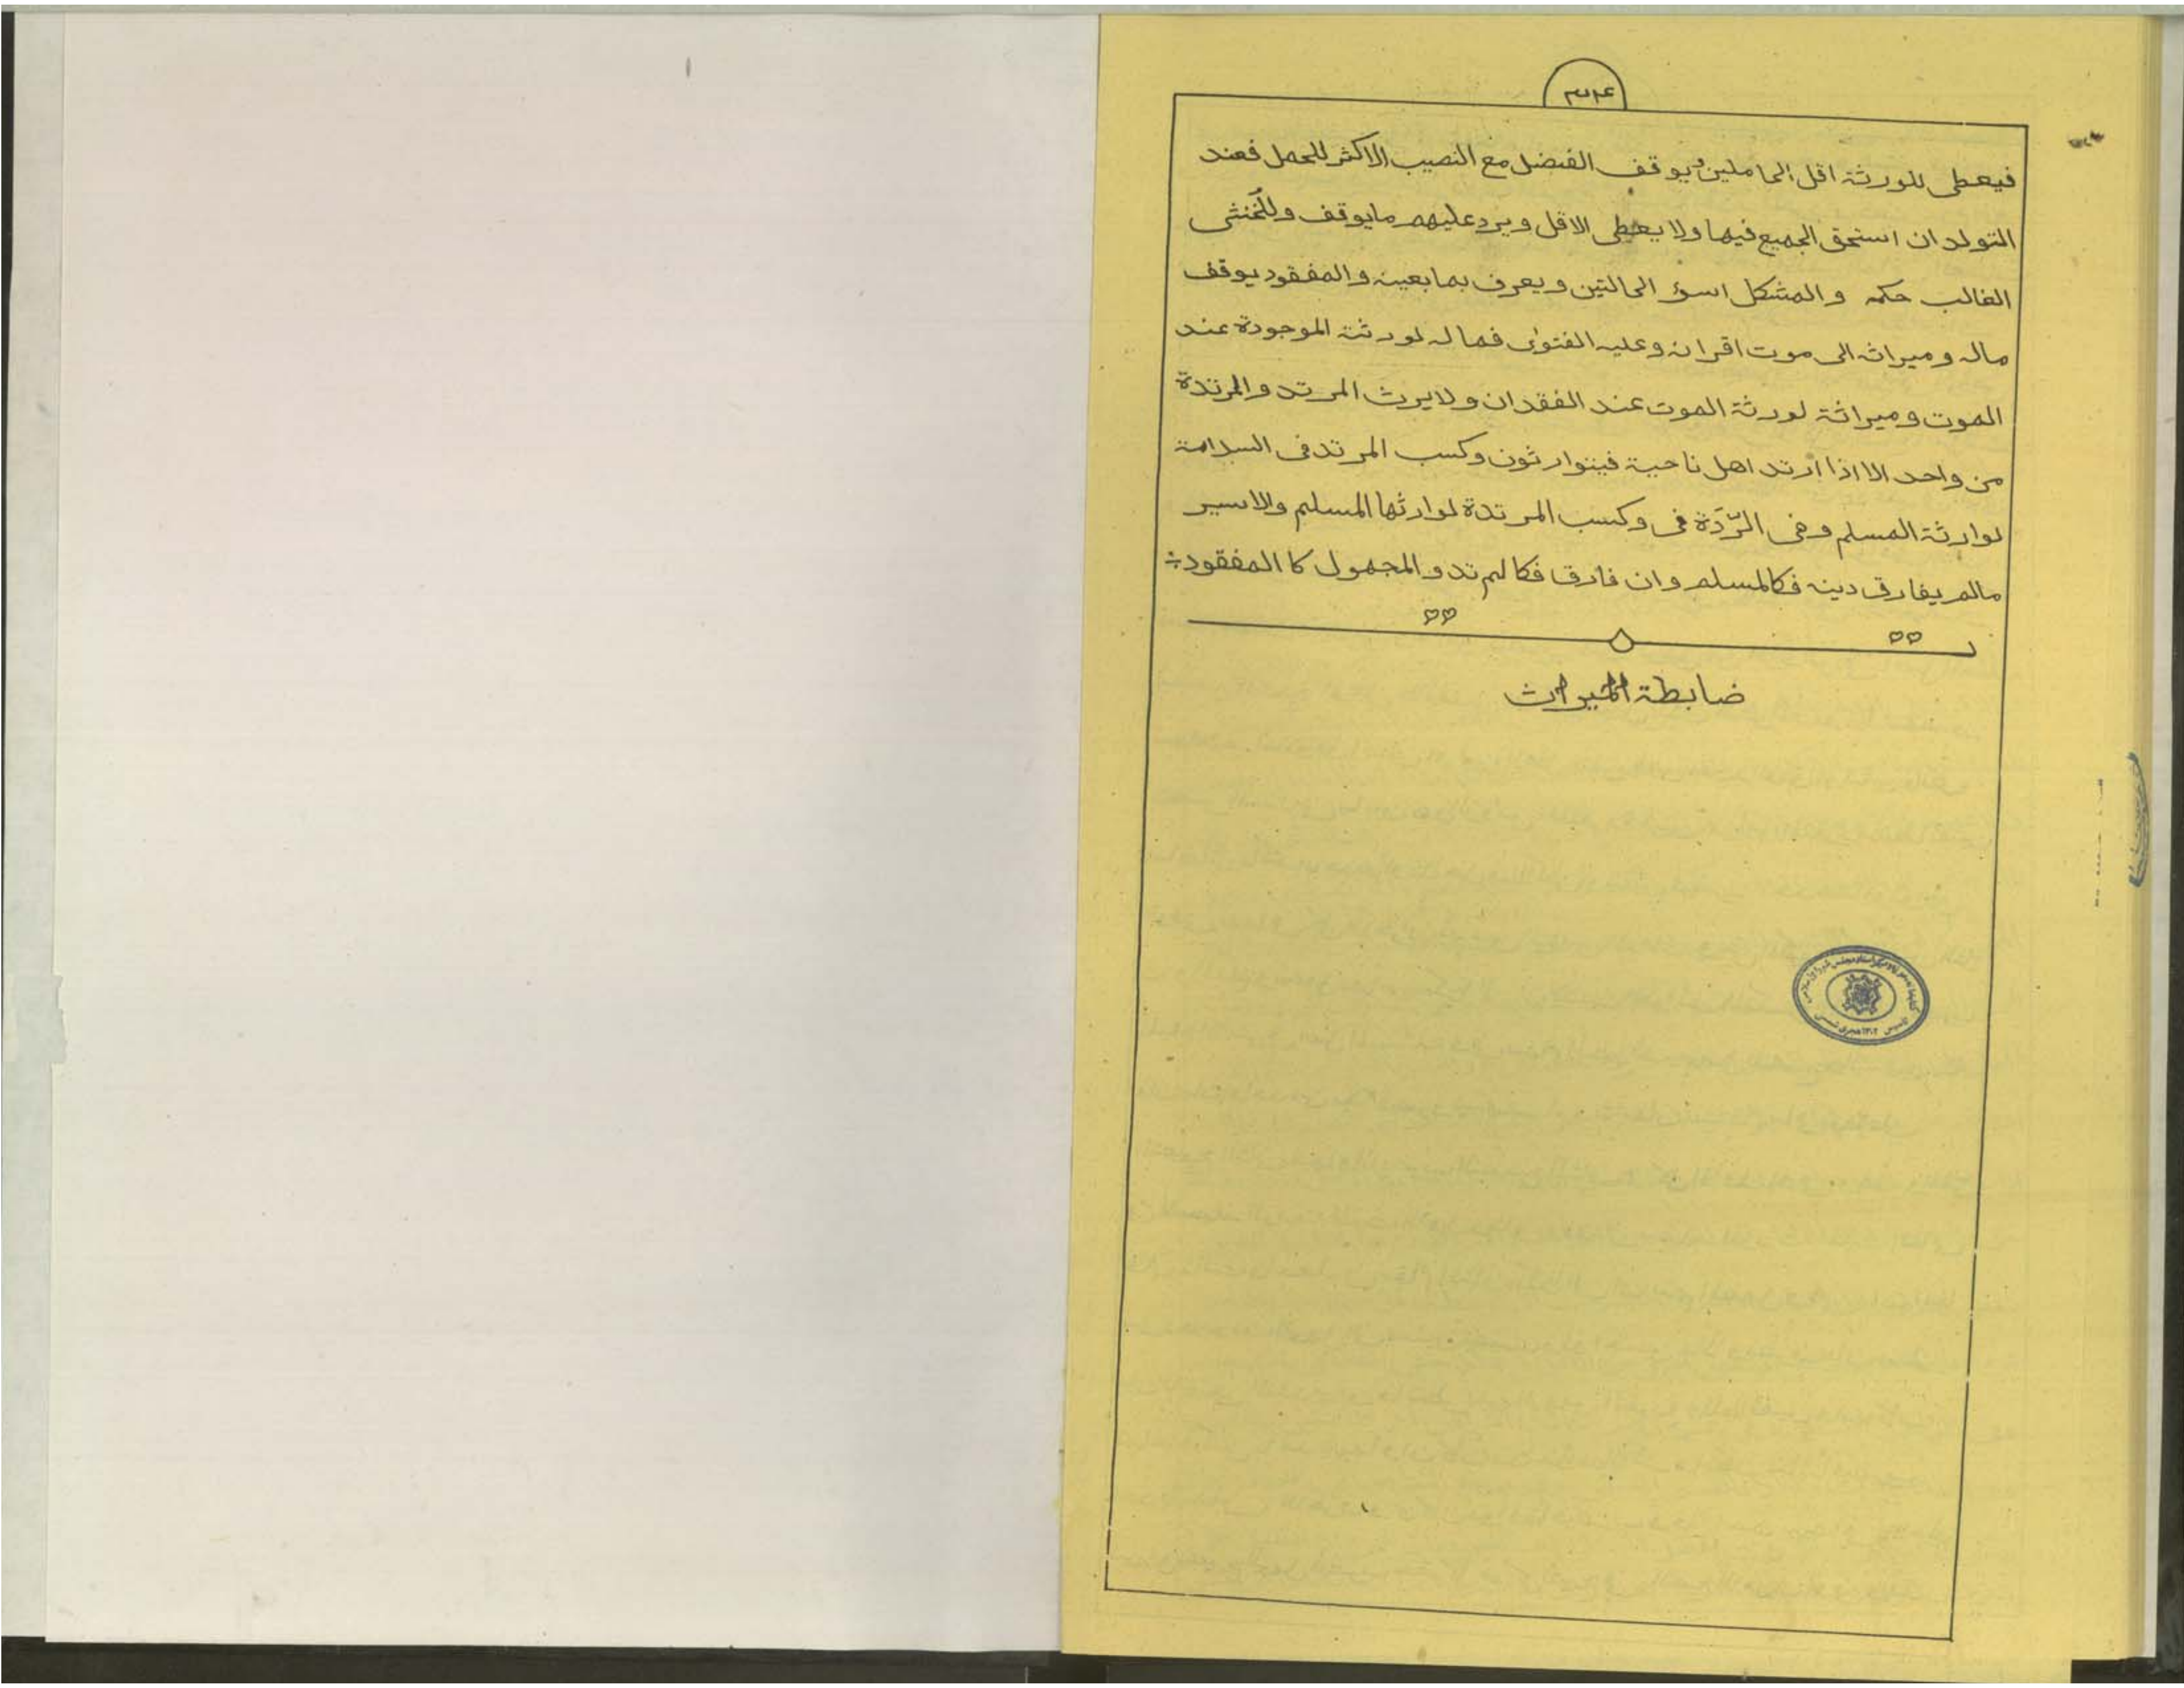 ۳۳۴
فيعطى للورثة اقل الحاملين و يوقف الفضل مع النصيب الاكثر للحمل فعند
التولد ان استحق الجميع فيها ولا يعطى الاقل ويرد عليهم مايوقف وللخنثى
الغالب حكمه و المشكل اسوء الحالتين ويعرف بمابعينه والمفقود يوقف
ماله وميراثه الى موت اقرانه وعليه الفتوى فماله لورثته الموجودة عند
الموت وميراثة لورثة الموت عند الفقدان ولايرث المرتد والمرتدة
من واحد الا اذا ارتد اهل ناحية فيتوارثون وكسب المرتد فى السلامة
لوارثة المسلم وفى الرّدَة فى وكسب المرتدة لوارثها المسلم والاسير
مالم يفارق دينه فكالمسلم وان فارق فكالمرتد والمجهول كا المفقود
ضابطة الميراث
کتابخانه موزه و مرکز اسناد مجلس شورای اسلامی
تاسیس ۱۳۰۲ هجری شمسی